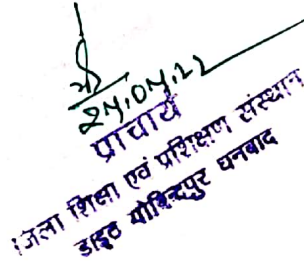 प्राचार्य
जिला शिक्षा एवं प्रशिक्षण संस्थान
डाइट गोविन्दपुर धनबाद